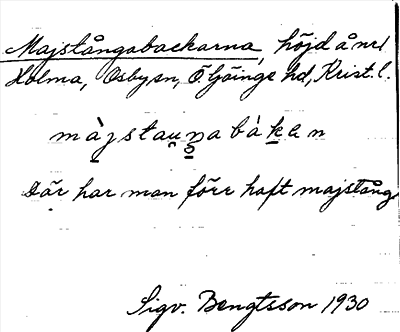 Majstångabackarna, höjd å nr 1
Holma, Osby sn, Ö. Göinge hd, Krist. l.
màjstau̯ŋabàken
Där har man förr haft majstång
Sigv. Bengtsson 1930